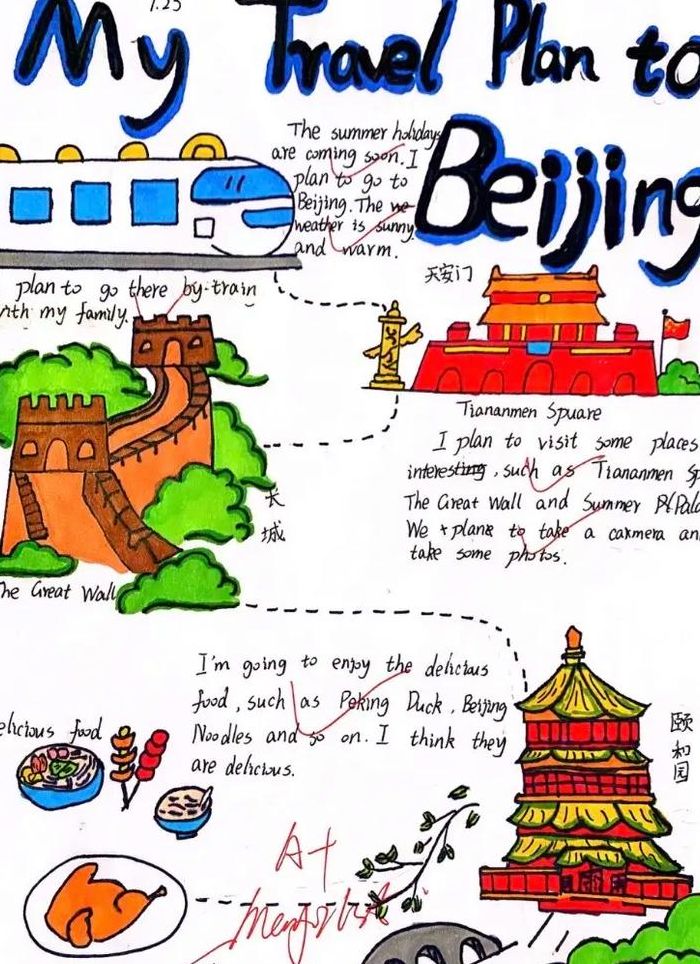 1.25
My Travel Plan to
Beijing
The summer holidays
are coming soon. I
plan to go to
Beijing. The we
weather is sunny
and warm.
plan to go there by train
my family.
天安门
Tiananmen Spuare
I plan to visit some places
interesting, such as Tiananmen
The Great Wall and Summer
We plan to take a camera
take some photos.
长
城
The Great Wall
I'm going to enjoy the delicious
food, such as Peking Duck, Beijing
Noodles and so on. I think they
are delicious.
颐
和
园
delicious food
A+